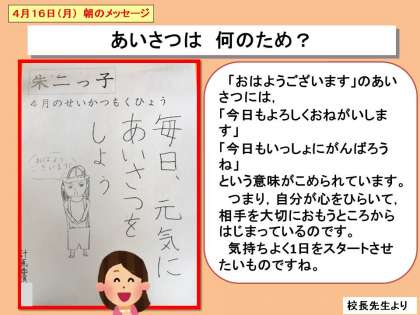 4月16日(月) 朝のメッセージ
あいさつは 何のため?
朱二っ子
4月のせいかつもくひょう
毎日、元気に
あいさつを
しよう
おはようございます
「おはようございます」のあい
さつには,
「今日もよろしくおねがいしま
す」
「今日もいっしょにがんばろう
ね」
という意味がこめられています。
つまり,自分が心をひらいて,
相手を大切におもうところから
はじまっているのです。
気持ちよく1日をスタートさせ
たいものですね。
校長先生より